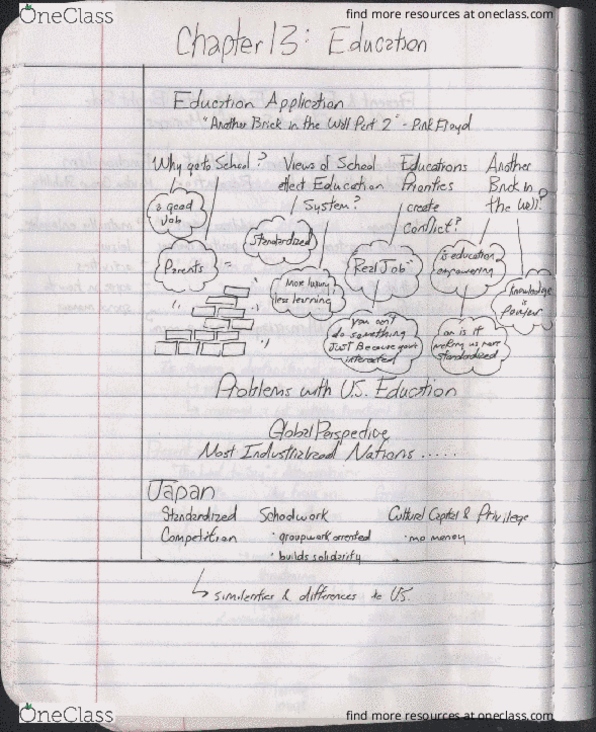 OneClass
find more resources at oneclass.com
Chapter 13: Education
Education Application
"Another Brick in the Wall Part 2" - Pink Floyd
Why go to School?
a good Job
Parents
Views of School effect Education System?
Standardized
More luxury, less learning
Educations Priorities create Conflict?
"Real Job"
you can't do something JUST Because your interested
Another Brick in the Wall?
is education empowering
or is it making us more standardized
knowledge is power
Problems with U.S. Education
Global Perspective
Most Industrialized Nations .....
Japan
Standardized Schoolwork Cultural Capital & Privilege
Competition · groupwork oriented · mo money
· builds solidarity
↳ similarities & differences to U.S.
OneClass
find more resources at oneclass.com